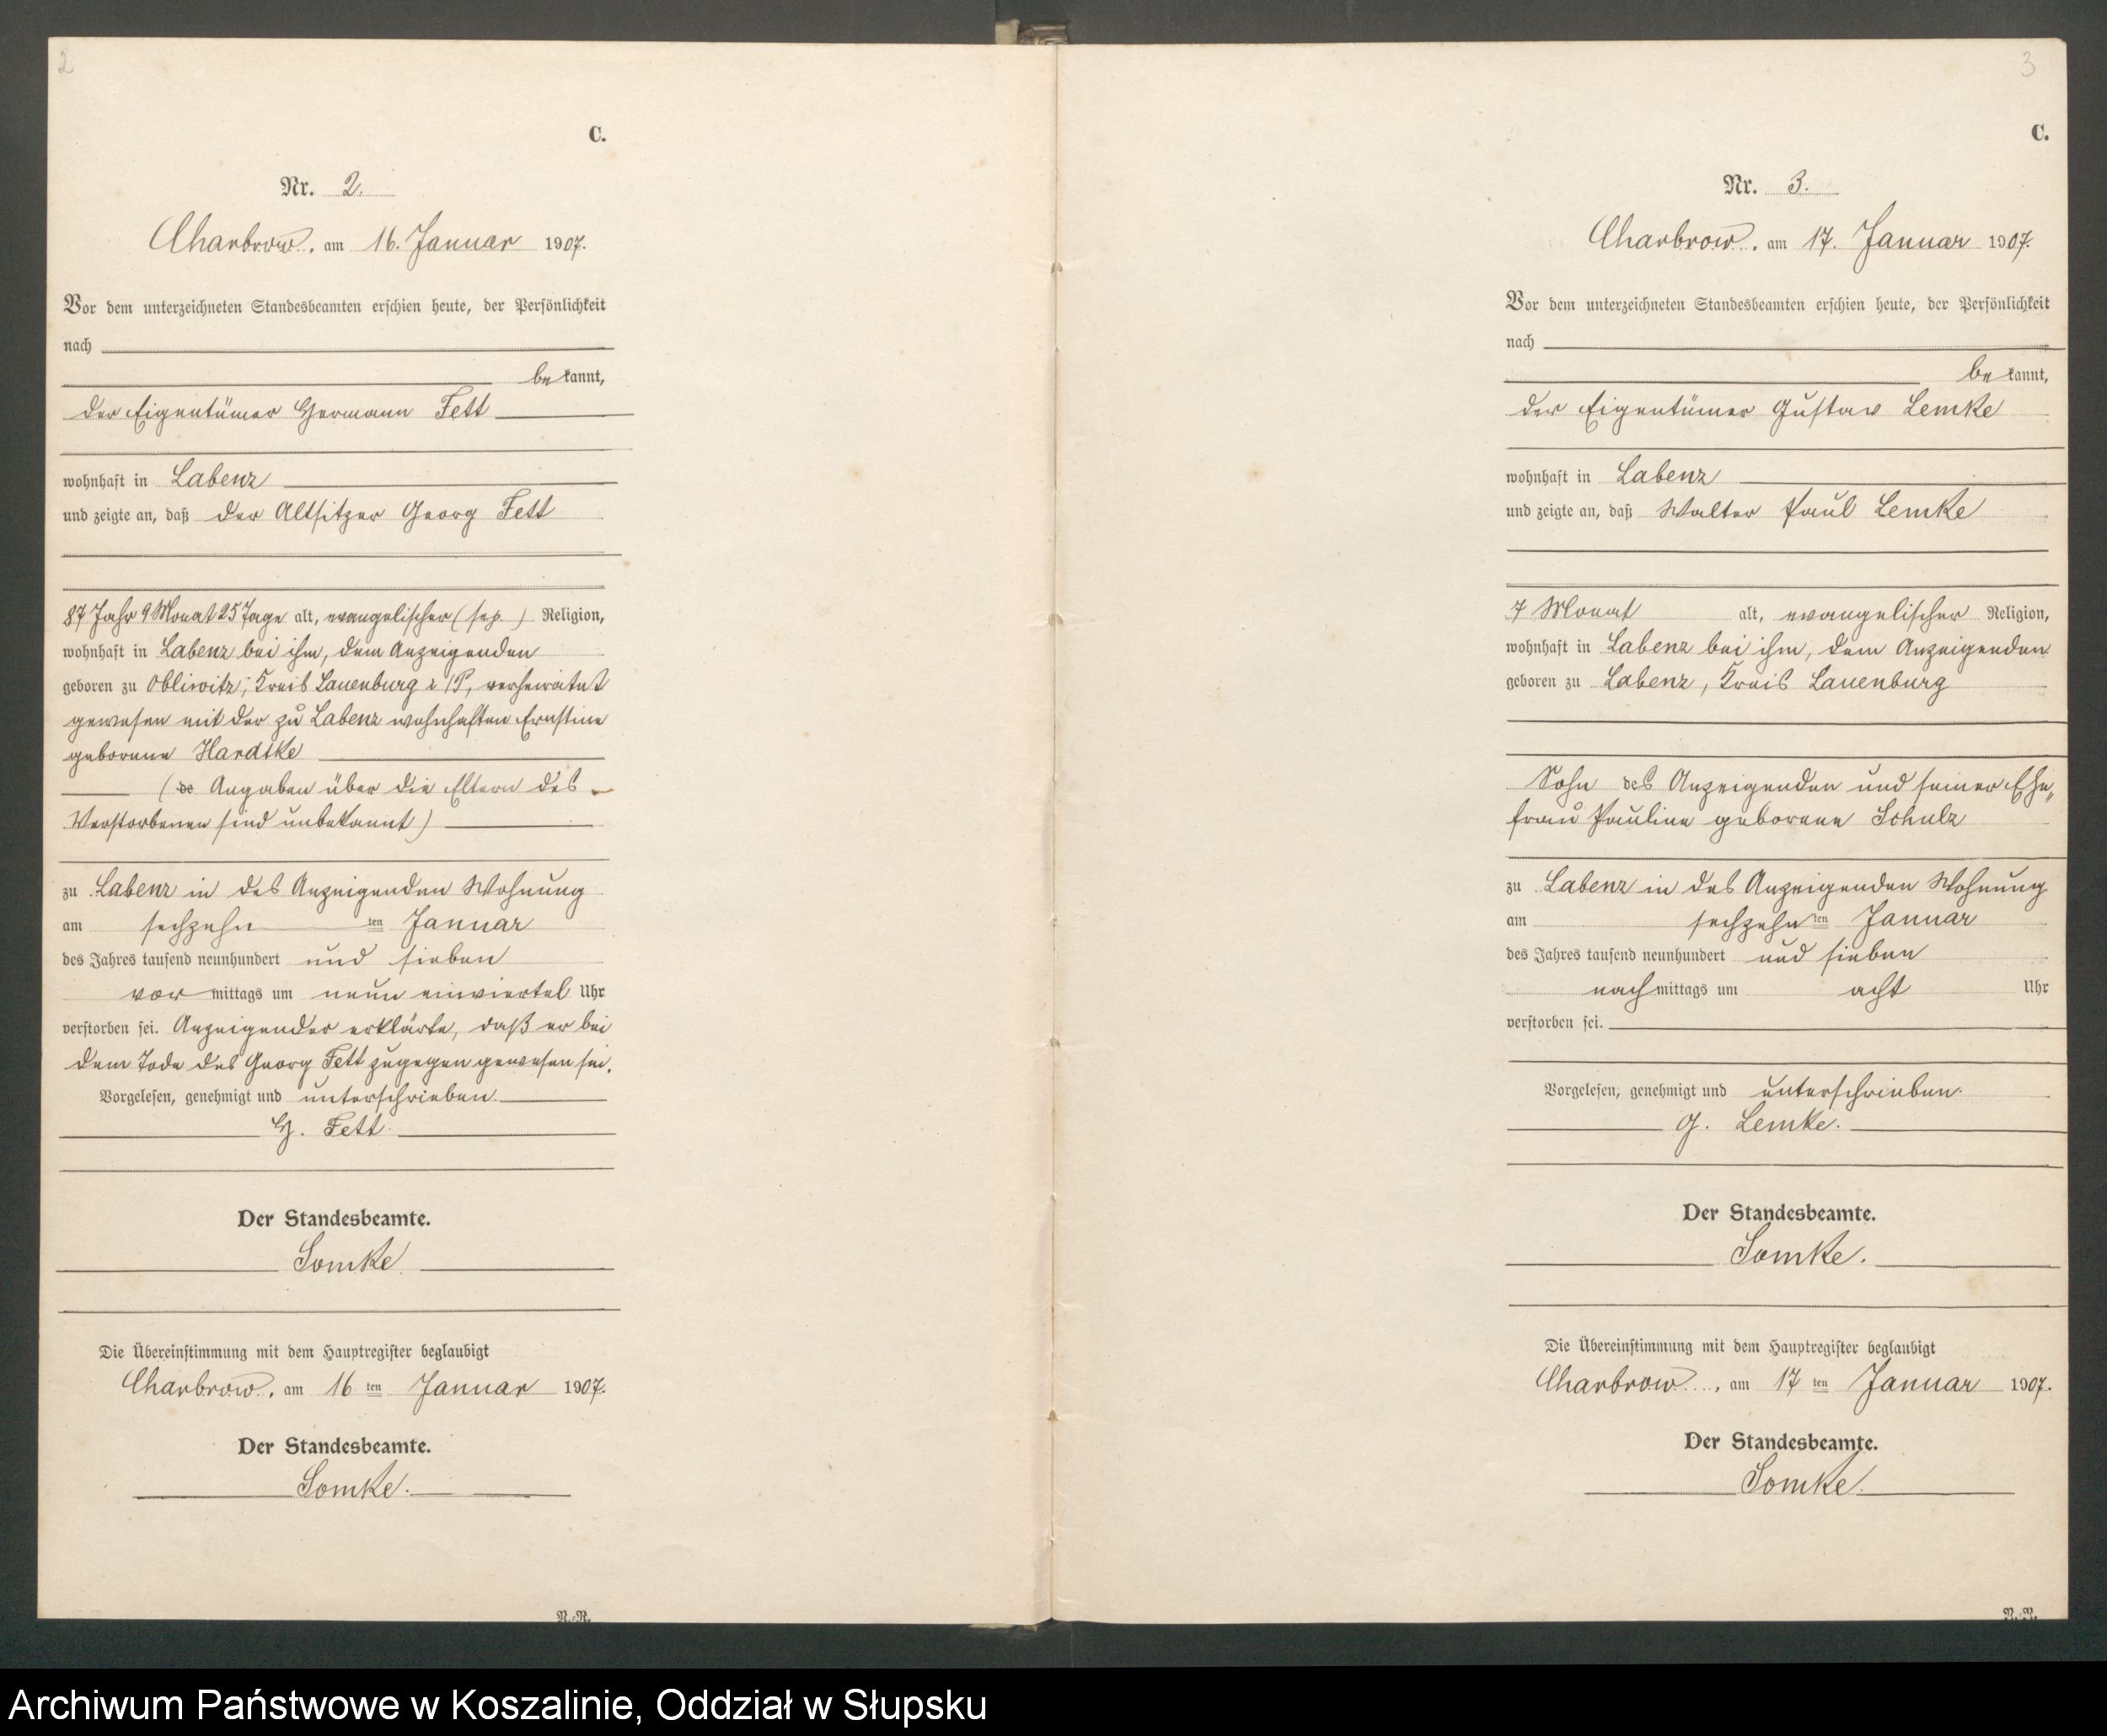 2
C.
Nr. 2.
Charbrow, am 16. Januar 1907.
Vor dem unterzeichneten Standesbeamten erschien heute, der Persönlichkeit
nach
bekannt,
der Eigentümer Hermann Fett
wohnhaft in Labenz
und zeigte an, daß der Altsitzer Georg Fett
87 Jahr 9 Monat 25 Tage alt, evangelischer (sep.) Religion,
wohnhaft in Labenz bei ihm, dem Anzeigenden
geboren zu Obliwitz, Kreis Lauenburg i/P, verheiratet
gewesen mit der zu Labenz wohnhaften Ernstine
geborene Hardtke
(de Angaben über die Eltern des
Verstorbenen sind unbekannt)
zu Labenz in des Anzeigenden Wohnung
am sechzehnten Januar
des Jahres tausend neunhundert und sieben
vormittags um neun einviertel Uhr
verstorben sei. Anzeigender erklärte, daß er bei
dem Tode des Georg Fett zugegen gewesen sei.
Vorgelesen, genehmigt und unterschrieben
H. Fett.
Der Standesbeamte.
Somke
Die Übereinstimmung mit dem Hauptregister beglaubigt
Charbrow, am 16ten Januar 1907.
Der Standesbeamte.
Somke.
N.-R.
3
C.
Nr. 3.
Charbrow, am 17. Januar 1907.
Vor dem unterzeichneten Standesbeamten erschien heute, der Persönlichkeit
nach
bekannt,
der Eigentümer Gustav Lemke
wohnhaft in Labenz
und zeigte an, daß Walter Paul Lemke
7 Monat alt, evangelischer Religion,
wohnhaft in Labenz bei ihm, dem Anzeigenden
geboren zu Labenz, Kreis Lauenburg
Sohn des Anzeigenden und seiner Ehe„
frau Pauline geborene Schulz
zu Labenz in des Anzeigenden Wohnung
am sechzehnten Januar
des Jahres tausend neunhundert und sieben
nachmittags um acht Uhr
verstorben sei.
Vorgelesen, genehmigt und unterschrieben.
G. Lemke.
Der Standesbeamte.
Somke.
Die Übereinstimmung mit dem Hauptregister beglaubigt
Charbrow, am 17ten Januar 1907.
Der Standesbeamte.
Somke.
N.-R.
Archiwum Państwowe w Koszalinie, Oddział w Słupsku